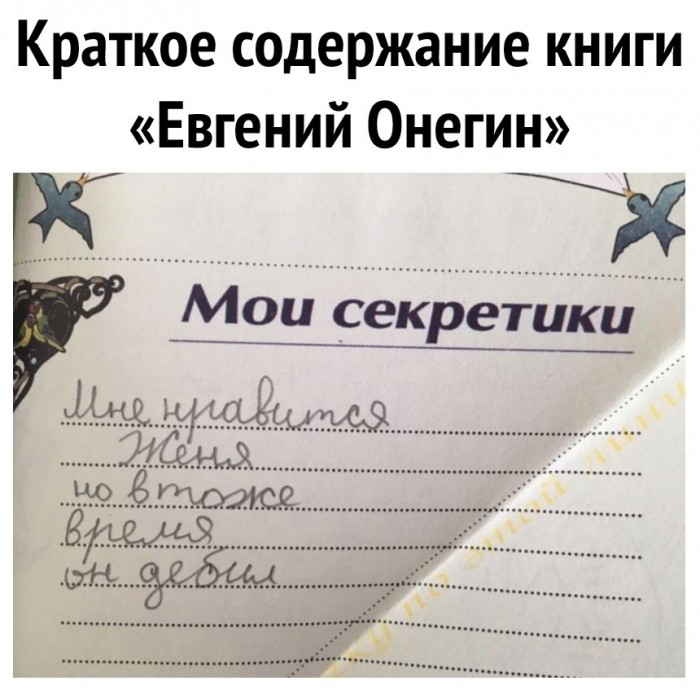 Краткое содержание книги
«Евгений Онегин»
Мои секретики
Мне нравится
Женя
но втоже
время
он дебил
по этой лини